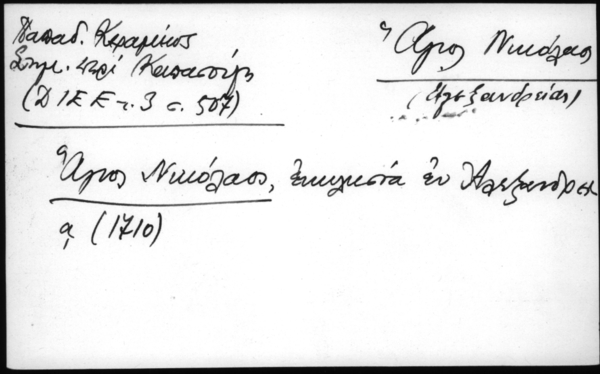 Παπαδ. Κεραμέως
Σημ. περί Καπασούλη
(ΔΙΕΕ τ. 3 σ. 507)
Ἅγιος Νικόλαος
(Ἀλεξανδρείας)
Ἅγιος Νικόλαος, ἐκκλησία ἐν Ἀλεξανδρεί
ᾳ (1710)